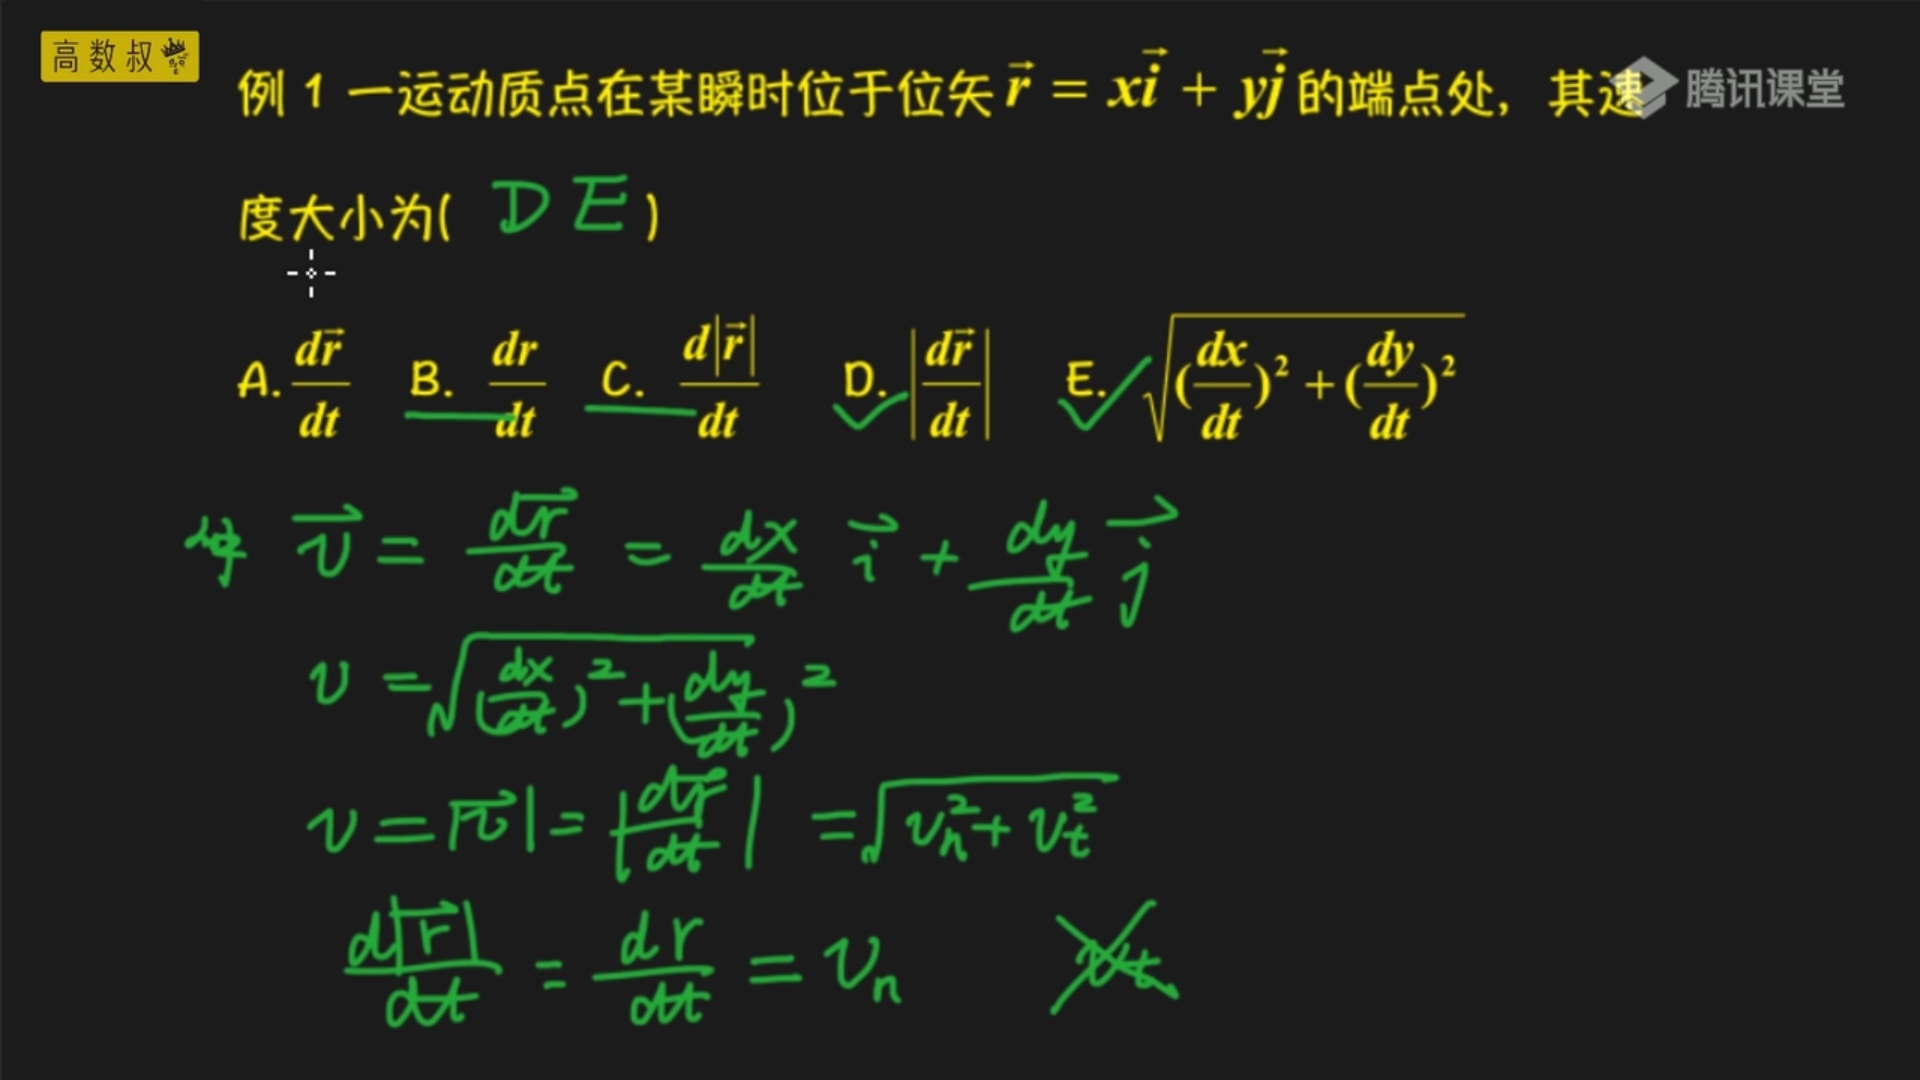 高数叔
腾讯课堂
例 1 一运动质点在某瞬时位于位矢 r⃗ = xi⃗ + yj⃗ 的端点处，其速
度大小为( D E )
A. dr⃗/dt B. dr/dt C. d|r⃗|/dt D. |dr⃗/dt| E. √((dx/dt)² + (dy/dt)²)
v⃗ = dr⃗/dt = dx/dt i⃗ + dy/dt j⃗
v = √((dx/dt)² + (dy/dt)²)
v = |v⃗| = |dr⃗/dt| = √(vₙ² + vₜ²)
d|r⃗|/dt = dr/dt = vₙ vₜ